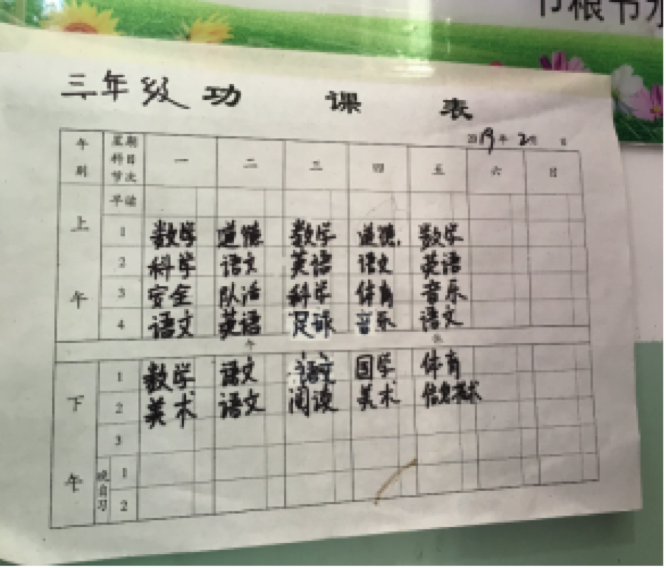 节粮节水
三年级 功 课 表
2019年2月 日
午别 星期 科目 节次 一 二 三 四 五 六 日
早读
上午
1 数学 道德 数学 道德 数学
2 科学 语文 英语 语文 英语
3 安全 队活 科学 体育 音乐
4 语文 英语 足球 音乐 语文
午 休
下午
1 数学 语文 语文 国学 体育
2 美术 语文 阅读 美术 信息技术
3
晚自习
1
2